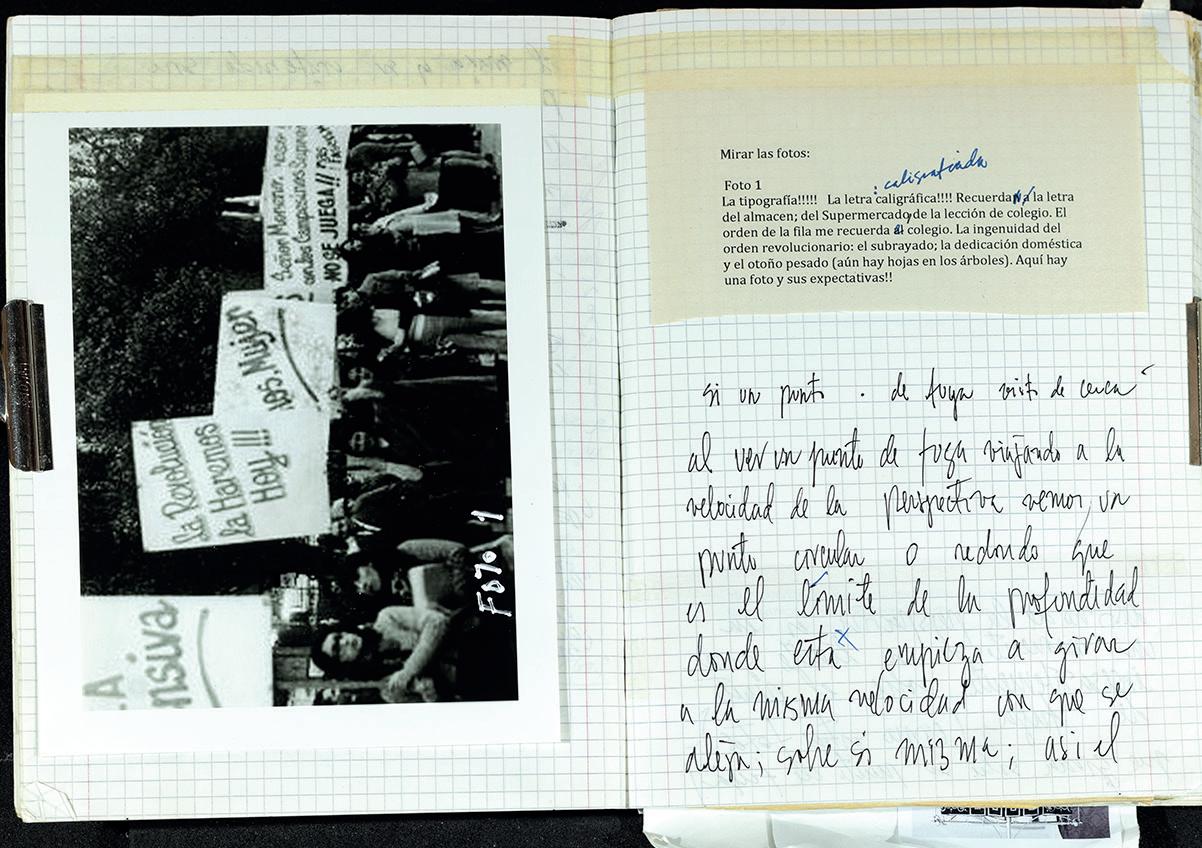 Señor Ministro
NO SE JUEGA!!
los. Mujor
la Revolución
la Haremos
Hoy!!!
A
nsiva
FOTO 1
Mirar las fotos:
: caligrafiada
Foto 1
La tipografía!!!!! La letra caligráfica!!!! Recuerda a la letra
del almacen; del Supermercado y de la lección de colegio. El
orden de la fila me recuerda al colegio. La ingenuidad del
orden revolucionario: el subrayado; la dedicación doméstica
y el otoño pesado (aún hay hojas en los árboles). Aquí hay
una foto y sus expectativas!!
si un punto . de fuga visto de cerca
al ver un punto de fuga viajando a la
velocidad de la perspectiva vemos un
punto circular o redondo que
es el límite de la profundidad
donde esta x empieza a girar
a la misma velocidad con que se
aleja; sobre si mizma; asi el